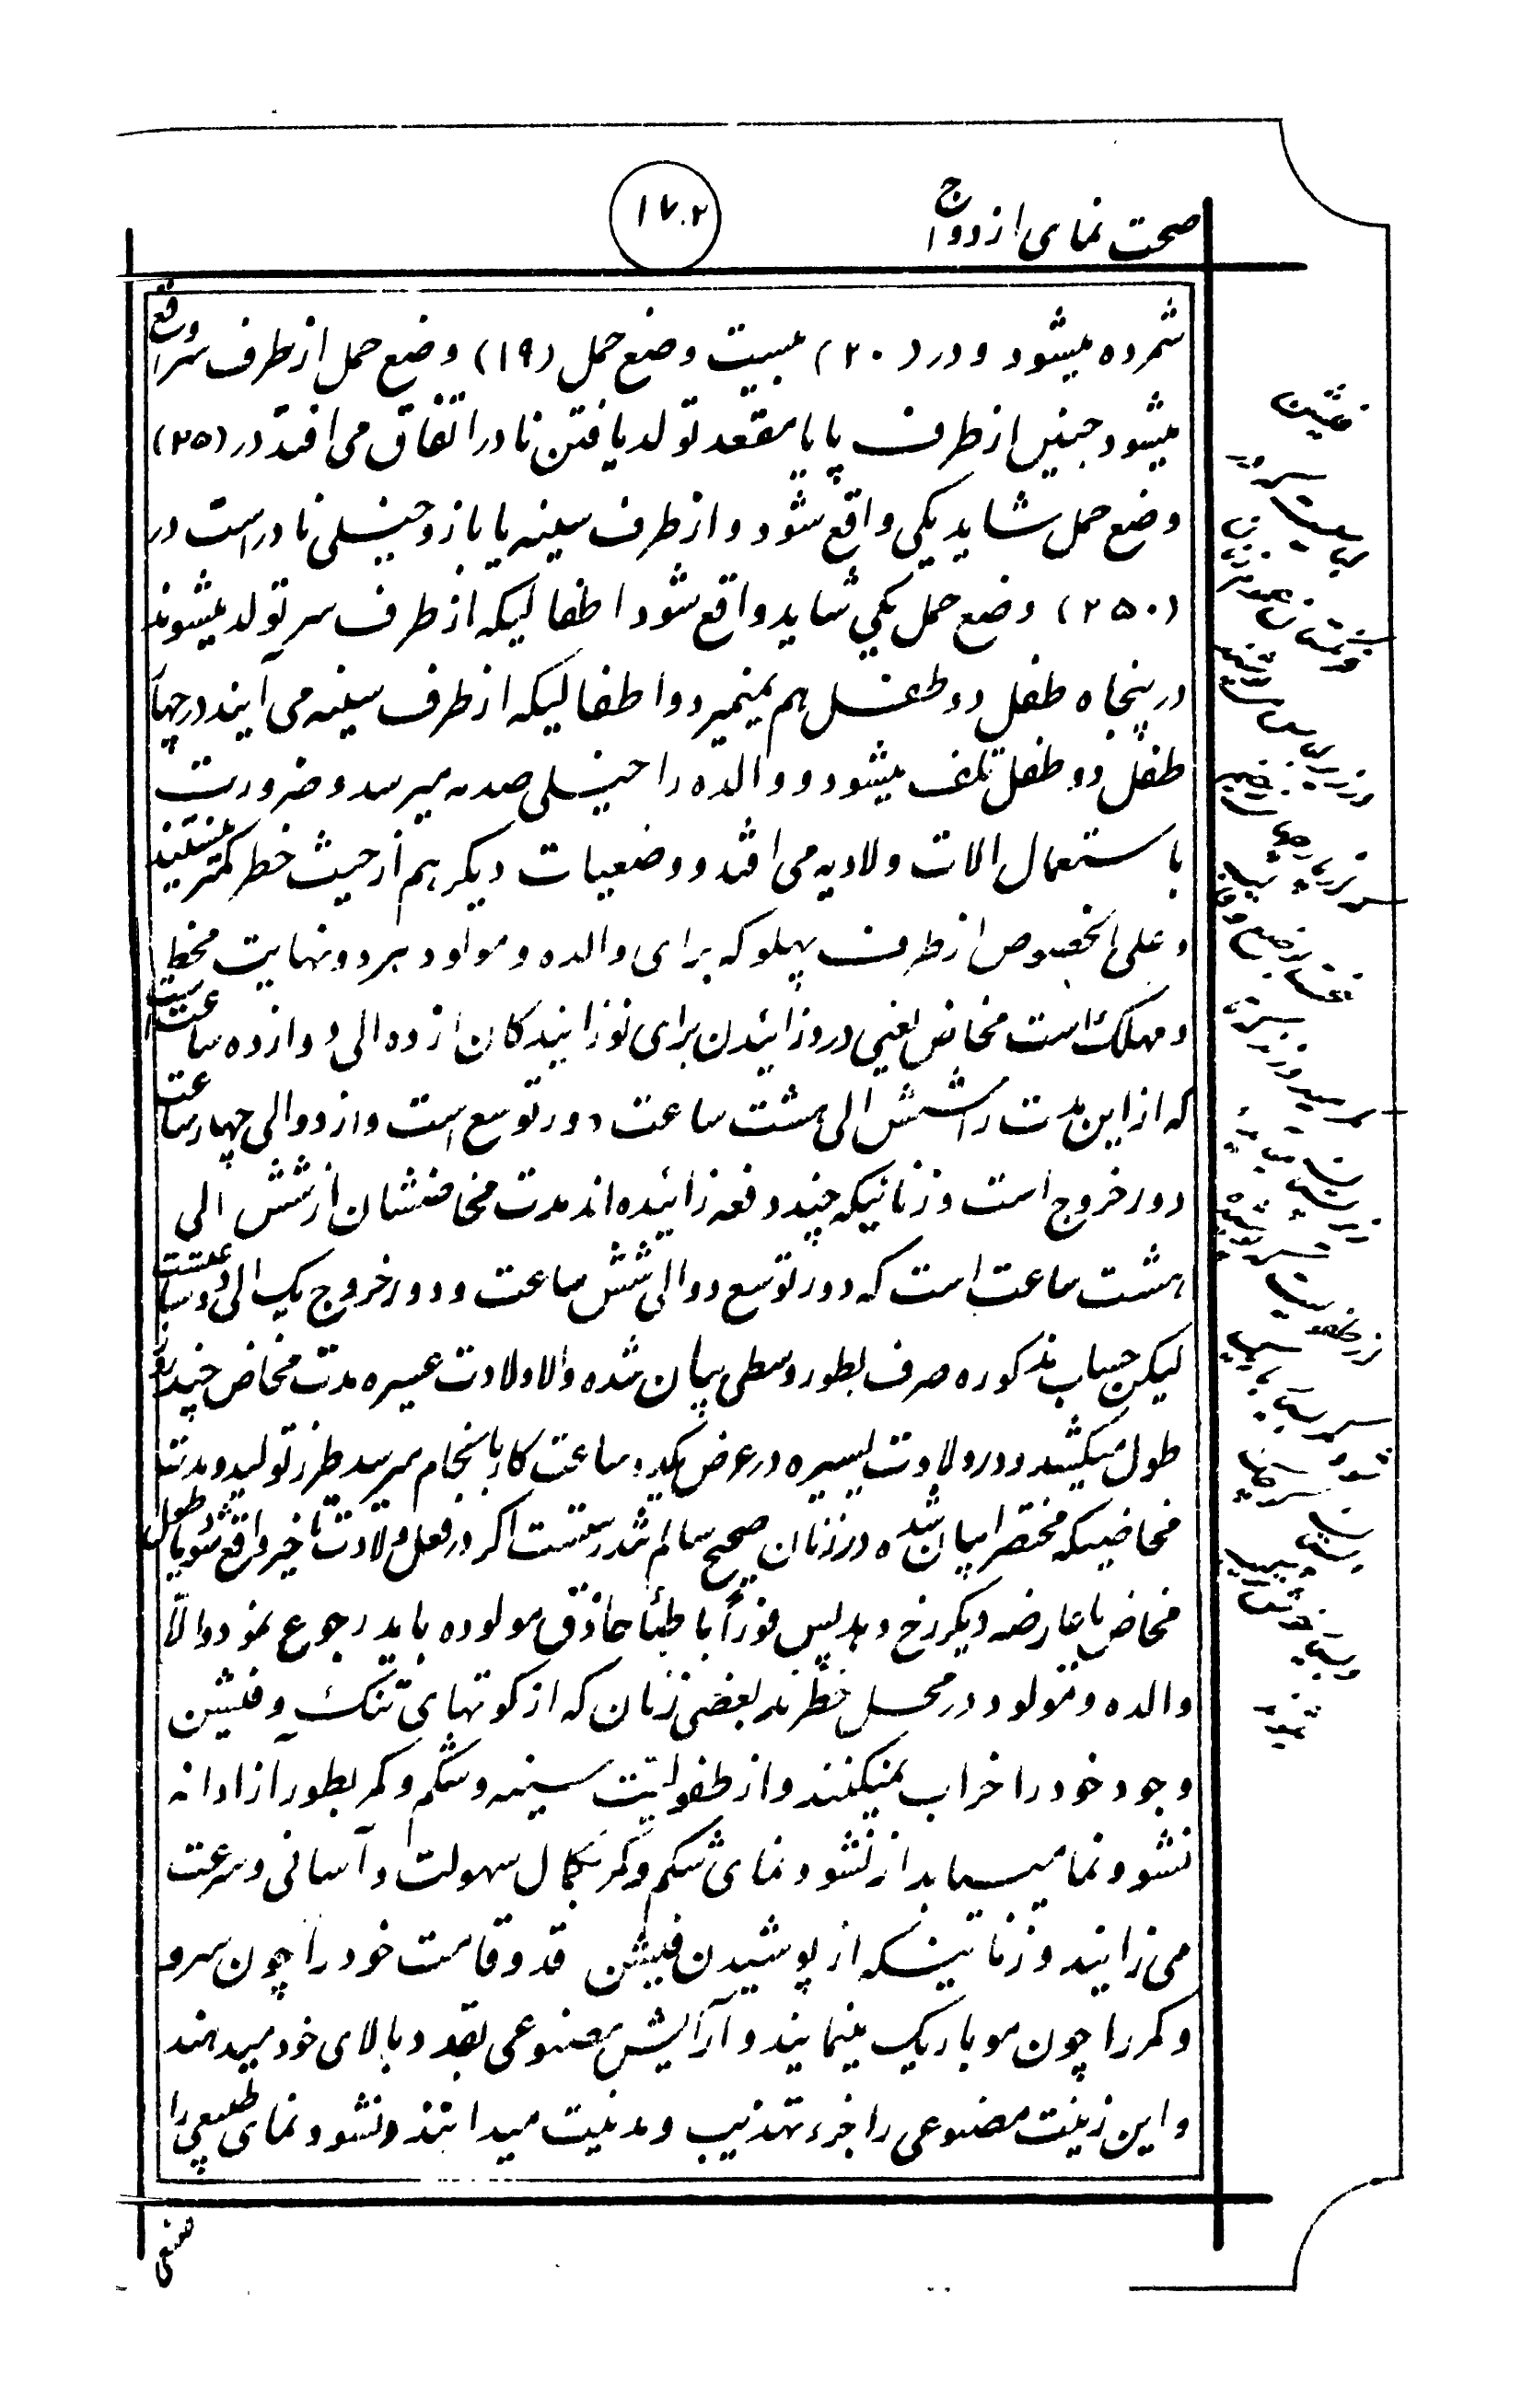 صحت نمای ازدواج
۱۷۲
شمرده میشود و در (۲۰) عبیت وضع حمل (۱۹) وضع حمل از طرف سر واقع
میشود جنین از طرف پا یا مقعد تولد یافتن نادرا تفاق می افتد در (۲۵)
وضع حمل شاید یکی واقع شود و از طرف سینه یا بازو خیلی نادر است در
(۲۵۰) وضع حمل یکی شاید واقع شود اطفالیکه از طرف سر تولد میشوند
در پنجاه طفل دو طفل هم نمیمیرد و اطفالیکه از طرف سینه می آیند در چهار
طفل دو طفل تلف میشود و والده را خیلی صدمه میرسد و ضرورت
با ستعمال الات ولادیه می افتد و وضعیات دیگر هم از حیث خطر کمتر نیستند
و علی الخصوص از طرف پهلو که برای والده و مولود هر دو نهایت مخطر
و مهلک است مخاض یعنی درد زائیدن برای نوزایندگان از ده الی دوازده ساعت است
که از این مدت را شش الی هشت ساعت دور توسع است و از دو الی چهار ساعت
دور خروج است و زنانیکه چند دفعه زائیده اند مدت مخاضشان از شش الی
هشت ساعت است که دور توسع دو الی شش ساعت و دور خروج یک الی دو ساعت است
لیکن حساب مذکوره صرف بطور وسطی بیان شده والا ولادت عسیره مدت مخاض چند روز
طول میکشد و در ولادت یسیره در عرض یکدو ساعت کار بانجام میرسد طرز تولید و مدت
مخاضیکه مختصرا بیان شده در زنان صحیح سالم تندرستست اگر در فعل ولادت تاخیر واقع شود یا طول
مخاض یا عارضه دیگر رخ دهد پس فوراً با طبّأ حاذق مولوده باید رجوع نمود والّا
والده و مولود در محل خطرند بعضی زنان که از کوتهای تنگ و فیشن
وجود خود را خراب نمیکنند و از طفولیت سینه و شکم و کمر بطور آزادانه
نشو و نما مییابد از نشو و نمای شکم و کمر بکمال سهولت و آسانی و سرعت
می زایند و زنانیکه از پوشیدن فیشن قد و قامت خود را چون سرو
و کمر را چون مو باریک مینمایند و آرایش مصنوعی بقد و بالای خود میدهند
و این زینت مصنوعی را جزء تهذیب و مدنیت میدانند و نشو و نمای طبیعی را